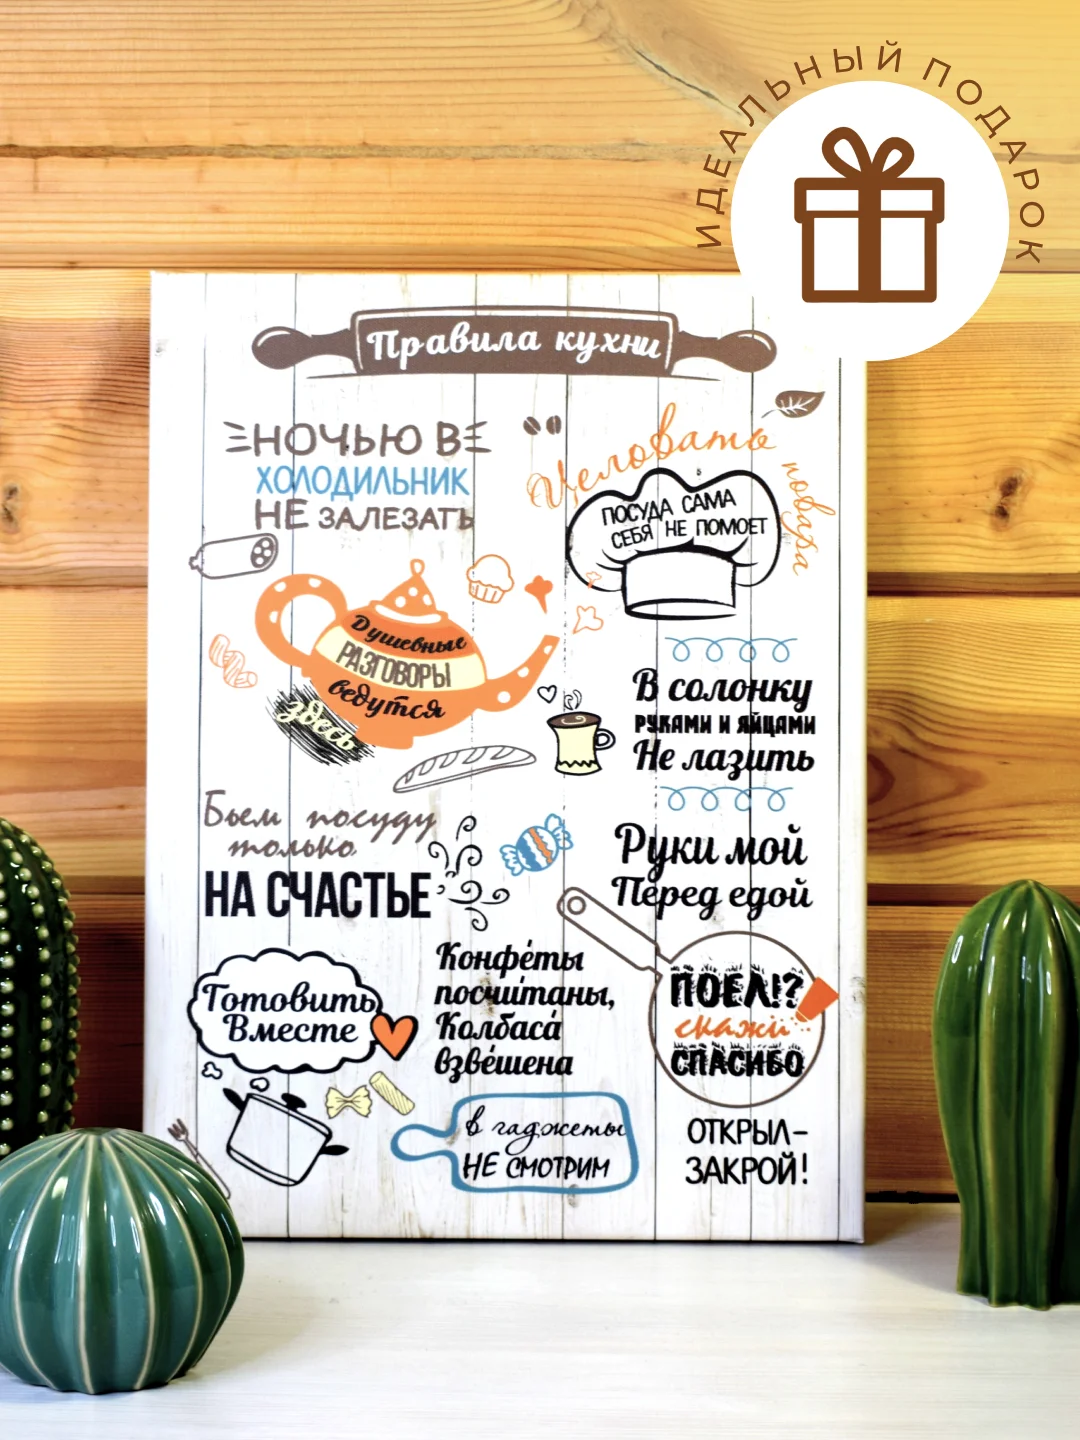 ИДЕАЛЬНЫЙ ПОДАРОК
Правила кухни
НОЧЬЮ В
ХОЛОДИЛЬНИК
НЕ ЗАЛЕЗАТЬ
Целовать
повара
ПОСУДА САМА
СЕБЯ НЕ ПОМОЕТ
Душевные
РАЗГОВОРЫ
ведутся
здесь
В солонку
РУКАМИ И ЯЙЦАМИ
Не лазить
Бьем посуду
только
НА СЧАСТЬЕ
Руки мой
Перед едой
Готовить
Вместе
Конфе́ты
посчи́таны,
Колбаса́
взве́шена
ПОЕЛ!?
скажи
СПАСИБО
в гаджеты
НЕ СМОТРИМ
ОТКРЫЛ-
ЗАКРОЙ!